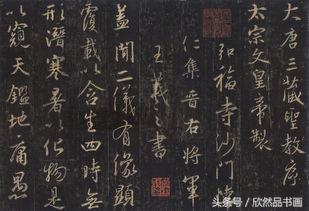 大唐三藏聖教序
太宗文皇帝製
弘福寺沙門懷
仁集晉右將軍
王羲之書
蓋聞二儀有像顯
覆載以含生四時無
形潛寒暑以化物是
以窺天鑑地庸愚
头条号 / 欣然品书画